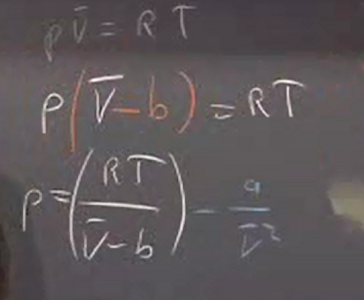 pV̄ = RT
P(V̄-b) = RT
P=(RT/V̄-b) - a/V̄²